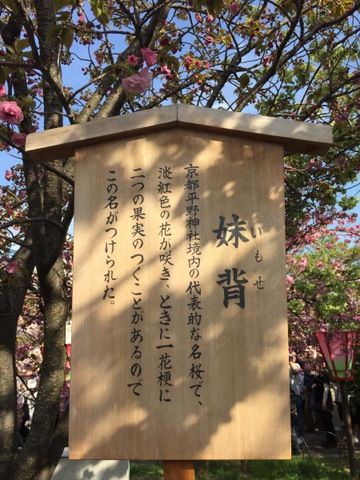 妹背
いもせ
京都平野神社境内の代表的な名桜で、
淡紅色の花が咲き、ときに一花梗に
二つの果実のつくことがあるので
この名がつけられた。